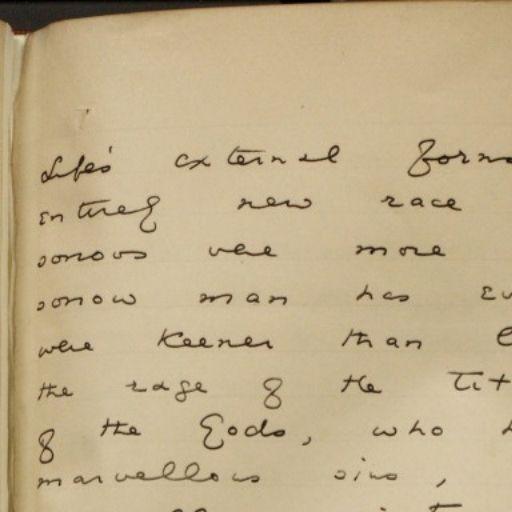 Life's external forms
entirely new race
sorrows were more
sorrow man has
were keener than
the rage of the Tit
of the Gods, who
marvellous sins,